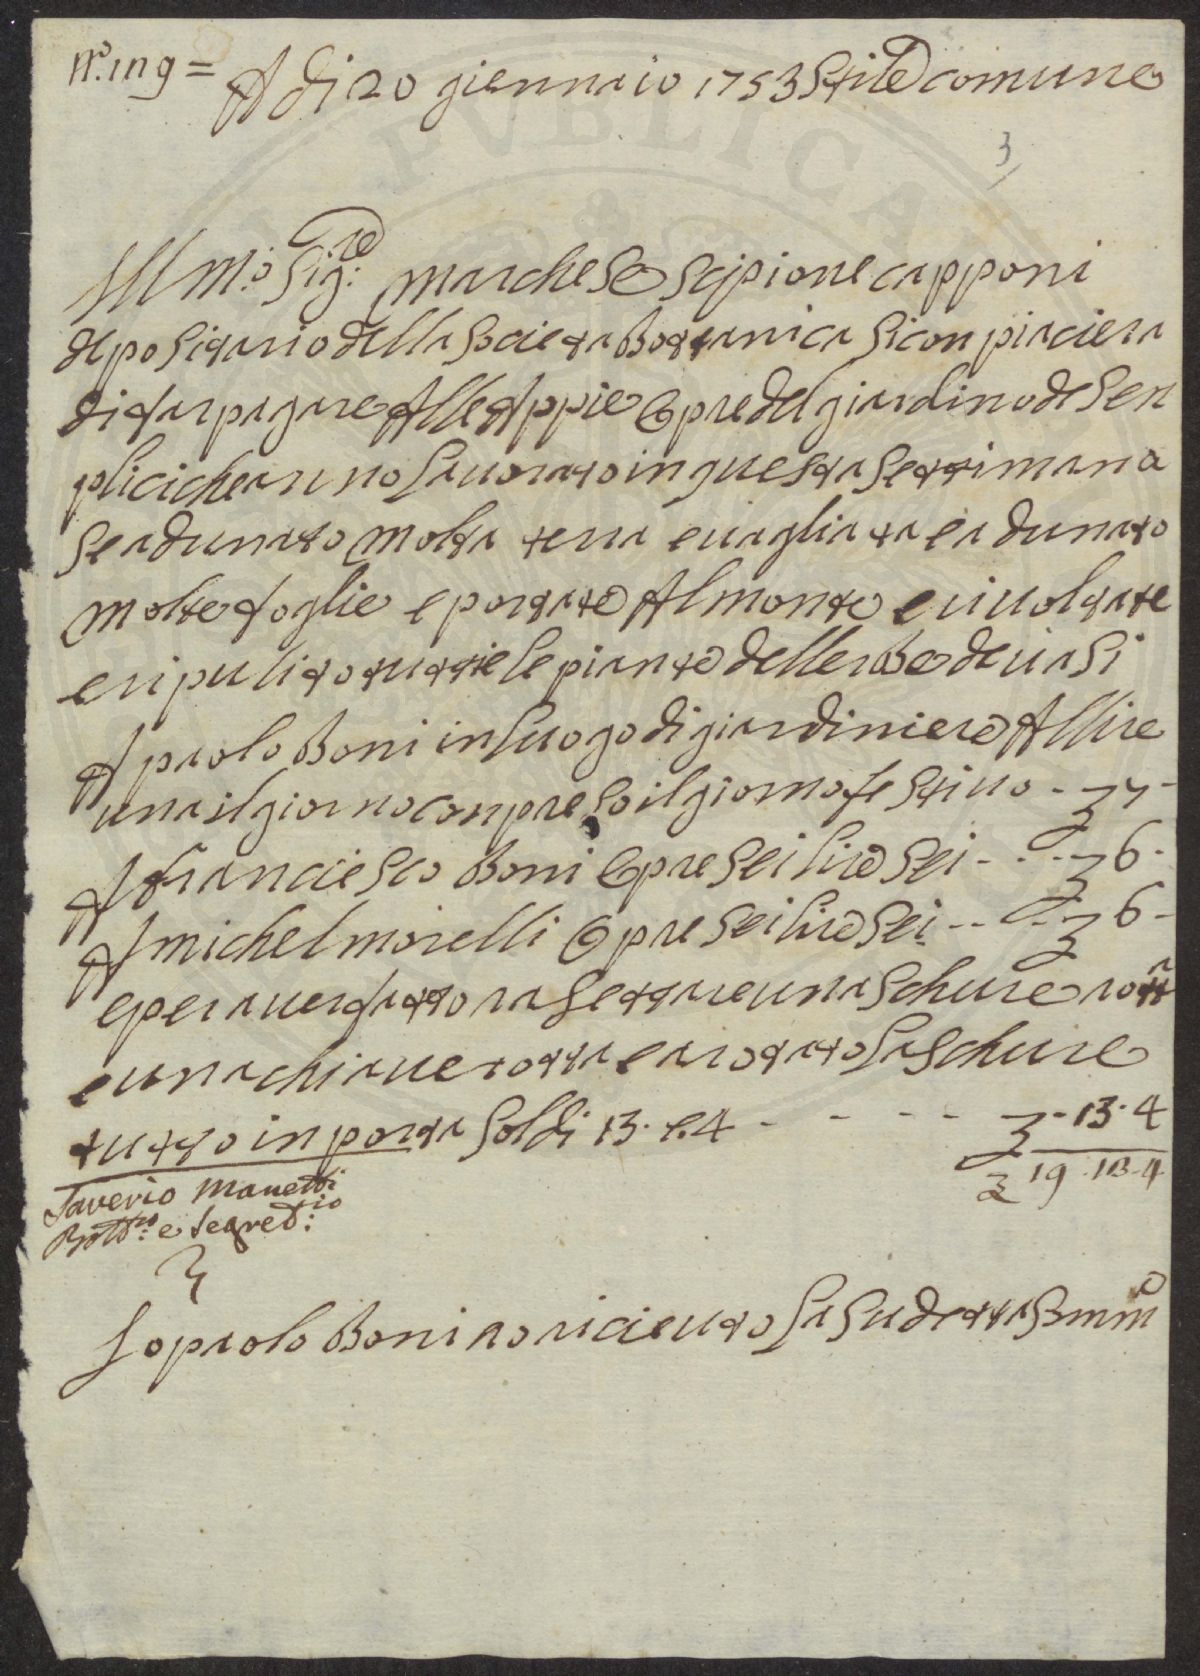 N.o 109 = A di 20 giennaio 1753 Stile comune
3
Ill.mo Sig.re Marchese Scipione capponi
depositario della Societa Bottanica Si conpiaciera
di far pagare Alle Appie opre del giardino de Sen
plici che anno Lauorato in questa Settimana
Se adunato molta terra e uagliata e adunato
molte foglie e portate Al monte e riuoltate
e ripulito tuttte le piante dellerbe de uasi
A paolo Boni in luogo di giardiniere A Llire
una il giorno conpreso il giorno festiuo - £ 7 -
A franciesco Boni opre Sei lire Sei - - - £ 6 -
A michel morelli opre Sei lire Sei - - - £ 6 -
e per auer fatto rasettare una Schure rotta
e una chiaue rotta e arotato la Schure
tutto in porta Soldi 13. e 4 - - - - £ - 13. 4
£ 19. 13. 4
Saverio Manetti
e Segret.rio
Io paolo Boni o riceuto la Sudetta Somma